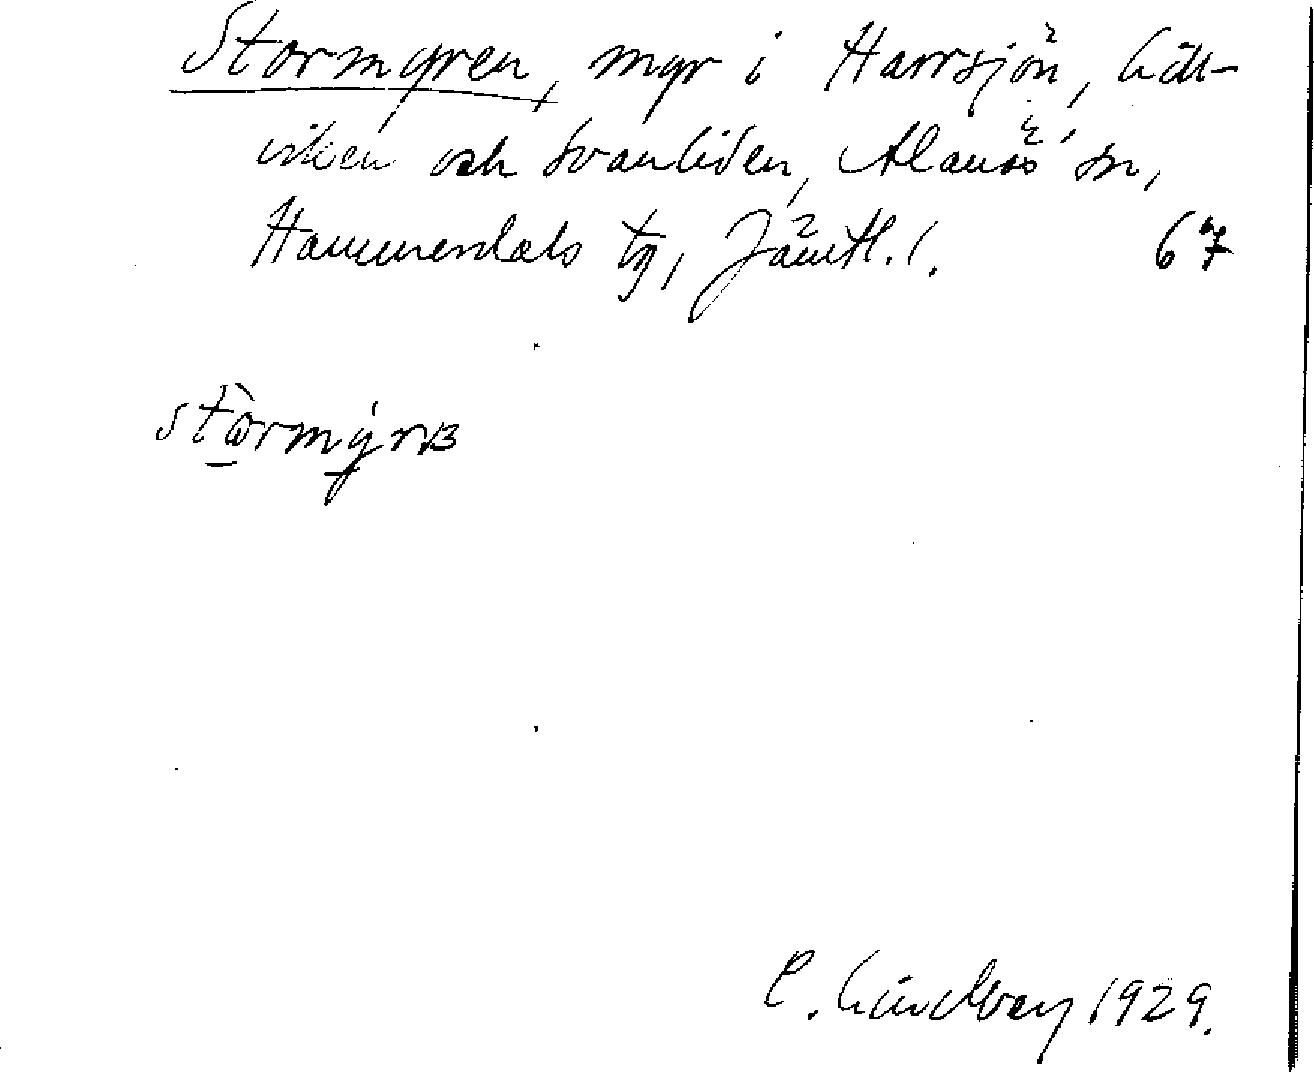 Stormyren, myr i Harrsjön, Lill-
viken och Svanliden, Alanäs sn,
Hammerdals tg, Jämtl. l. 67
C. Lindberg 1929.